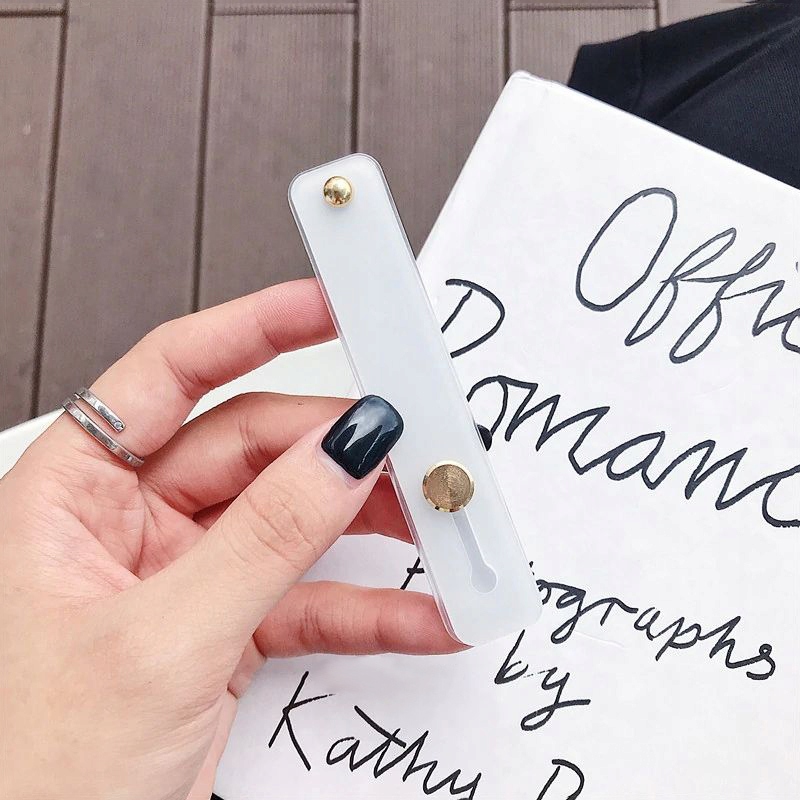 Offic
Romanc
ographs
by
Kathy